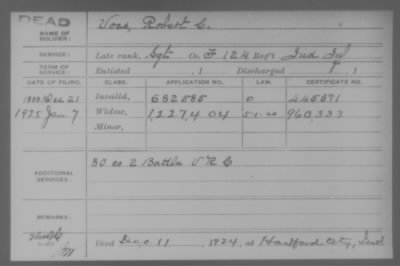 DEAD
NAME OF SOLDIER: Voss, Robert C.
SERVICE: Late rank, Sgt Co. F 124 Reg't Ind Inf
TERM OF SERVICE: Enlisted , 1 Discharged , 1
DATE OF FILING. CLASS. APPLICATION NO. LAW. CERTIFICATE NO.
1888 Dec 21 Invalid, 682585 445871
1925 Jan 7 Widow, 1227404 5-1-20 960,333
Minor,
ADDITIONAL SERVICES: 80 co 2 Battln V R C
REMARKS:
Died Dec. 11, 1924, at Hartford City, Ind